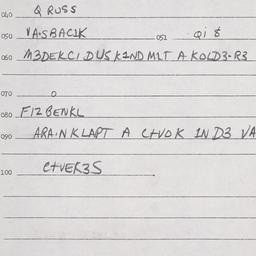 040 Q RUSS
050 VA·SBACIK 051 Qi &
060 M3DEKCI DUSK1ND MLT A KOLD3·R3
070
080 FIZBENKL
090 ARA·N KLAPT A C+VOK IN D3 VA
100 C+VEK3S